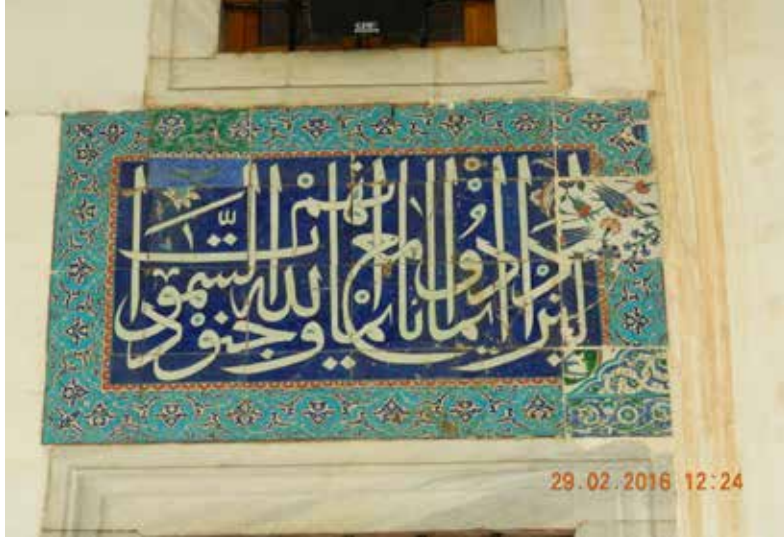 ليزدادوا ايمانا مع ايمانهم ولله جنود السموات
29.02.2016 12:24